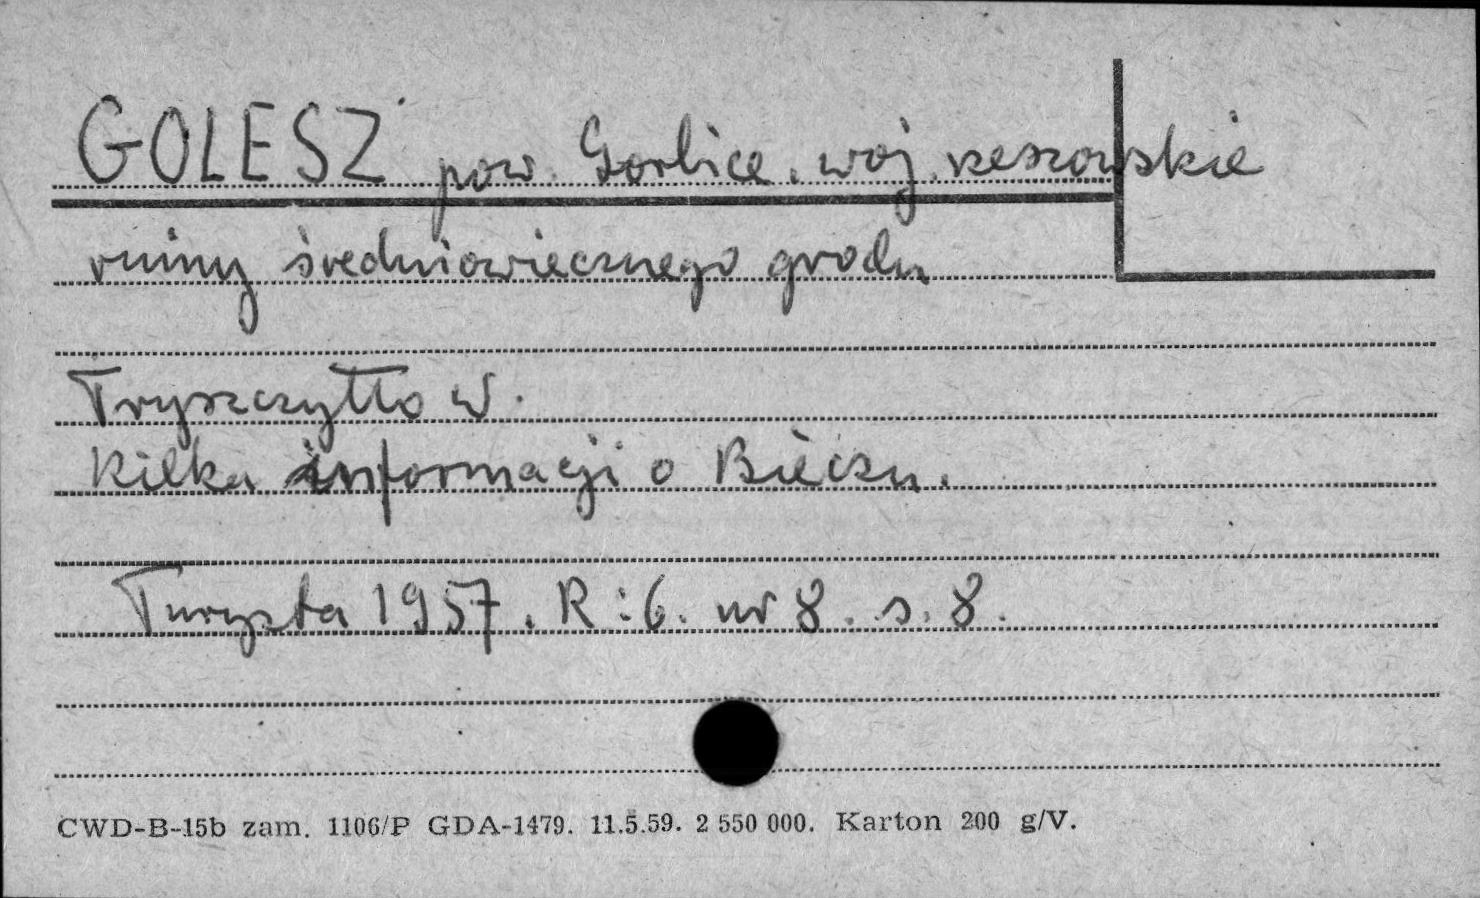 GOLESZ pow. Gorlice. woj. rzeszowskie
ruiny średniowiecznego grodu
Tryszczyłło W.
Kilka informacji o Bieczu.
Turysta 1957. R:6. nr 8. s. 8.
CWD-B-15b zam. 1106/P GDA-1479. 11.5.59. 2 550 000. Karton 200 g/V.